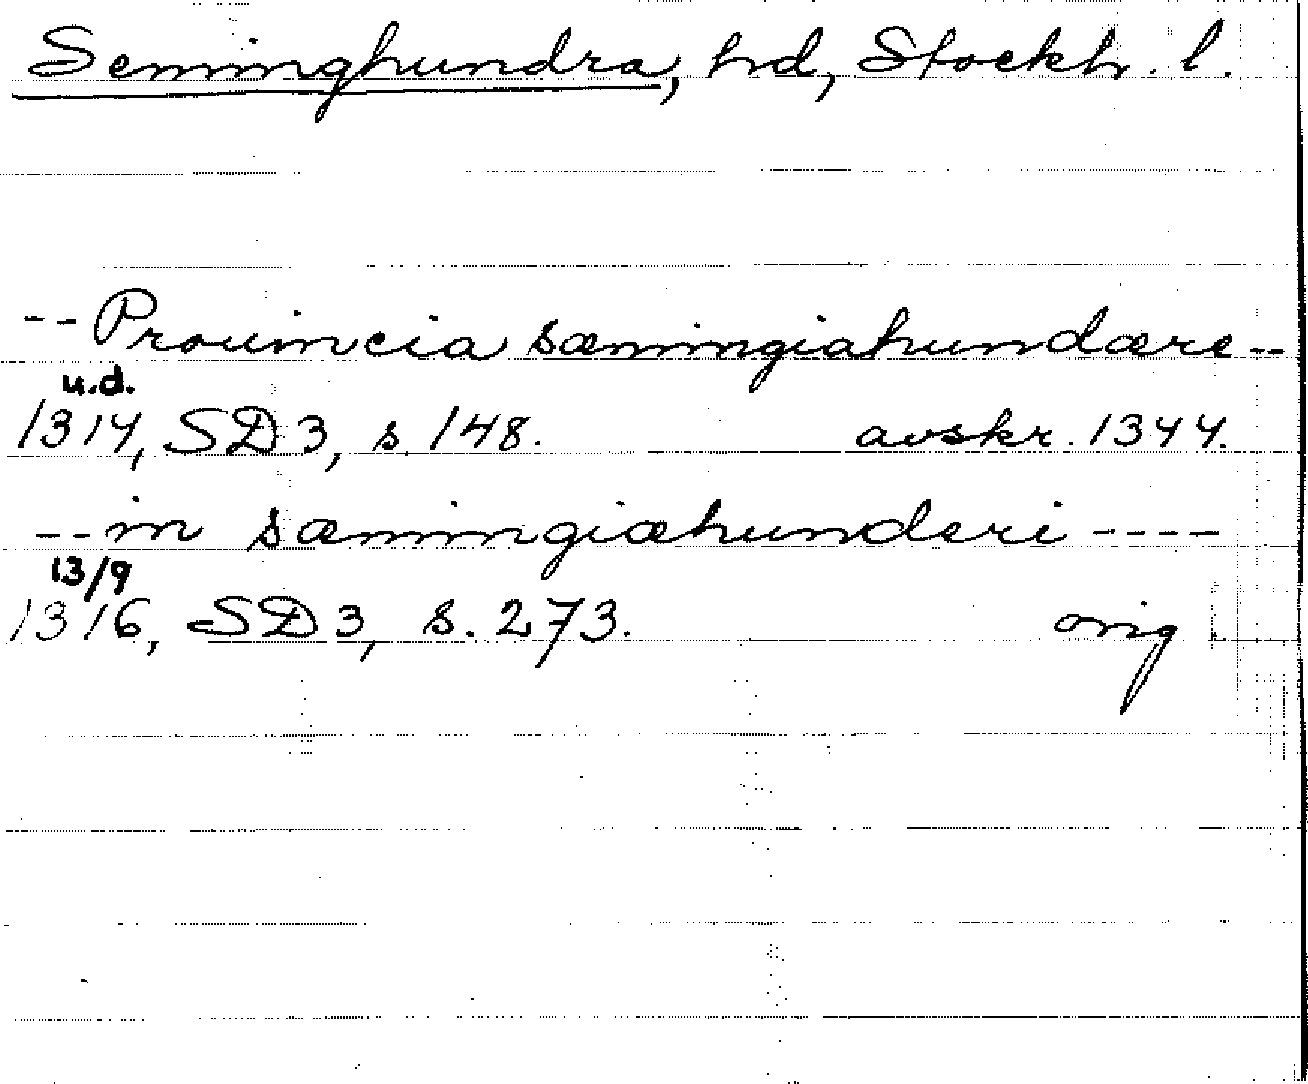 Seminghundra, hd, Stockh. l.
-- Prouincia sæmingiahundære --
u.d.
1314, SD 3, s. 148. avskr. 1344.
-- in sæmingiæhunderi ----
13/9
1316, SD 3, s. 273. orig